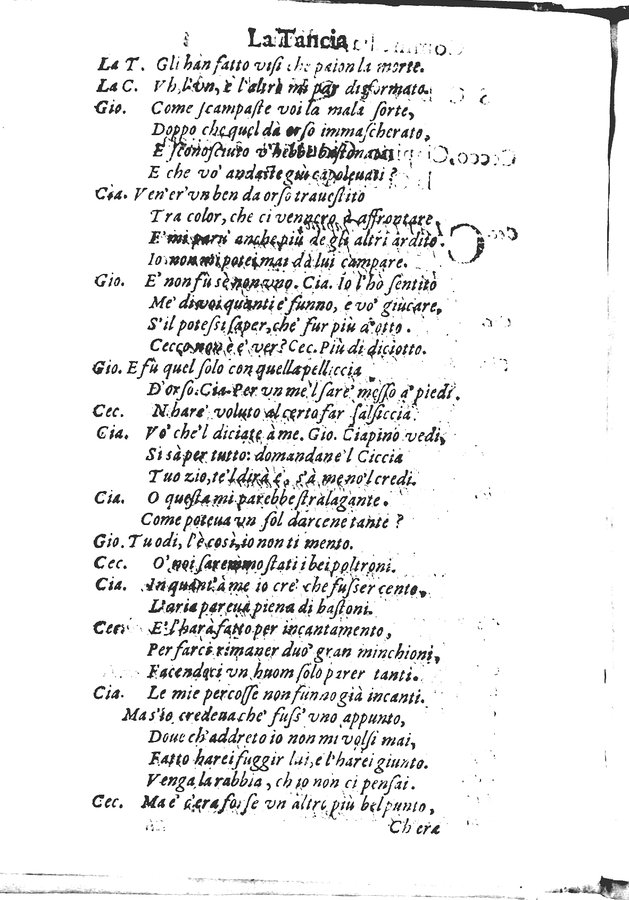 La Tancia
La T. Gli han fatto visi che paion la morte.
La C. Vh, l'vn, e l'altro mi par disformato.
Gio. Come scampaste voi la mala sorte,
Doppo che quel dà orso immascherato,
E sconosciuto v'hebbe bastonati
E che vo' andaste giù capoleuati?
Cia. Ven'er'vn ben da orso trauestito
Tra color, che ci vennero à affrontare,
E mi parù anche più de gli altri ardito.
Io non mi potei mai dà lui campare.
Gio. E' non fù sè non vno. Cia. Io l'hò sentito
Me' di voi quanti e' funno, e vo' giucare,
S'il potessi saper, che' fur più d'otto.
Cecco non è e' ver? Cec. Più di diciotto.
Gio. E fù quel solo con quella pelliccia
D'orso. Cia. Per vn me'l sare' messo a' piedi.
Cec. N'hare' voluto al certo far salsiccia.
Cia. Vo' che'l diciate à me. Gio. Ciapino vedi,
Si sà per tutto: domandane'l Ciccia
Tuo zio, te'l dirà e', s'à me no'l credi.
Cia. O questa mi parebbe stralagante.
Come poteua vn sol darcene tante?
Gio. Tu odi, l'è così, io non ti mento.
Cec. O' noi saremmo stati i bei poltroni.
Cia. In quant'à me io cre' che fusser cento,
L'aria pareua piena di bastoni.
Cec. E' l'harà fatto per incantamento,
Per farci rimaner duo' gran minchioni,
Facendoci vn huom solo parer tanti.
Cia. Le mie percosse non funno già incanti.
Ma s'io credeua che' fuss' vno appunto,
Doue ch'addreto io non mi volsi mai,
Fatto harei fuggir lui, e l'harei giunto.
Venga la rabbia, ch io non ci pensai.
Cec. Ma e' c'era forse vn altro più bel punto,
Ch'era